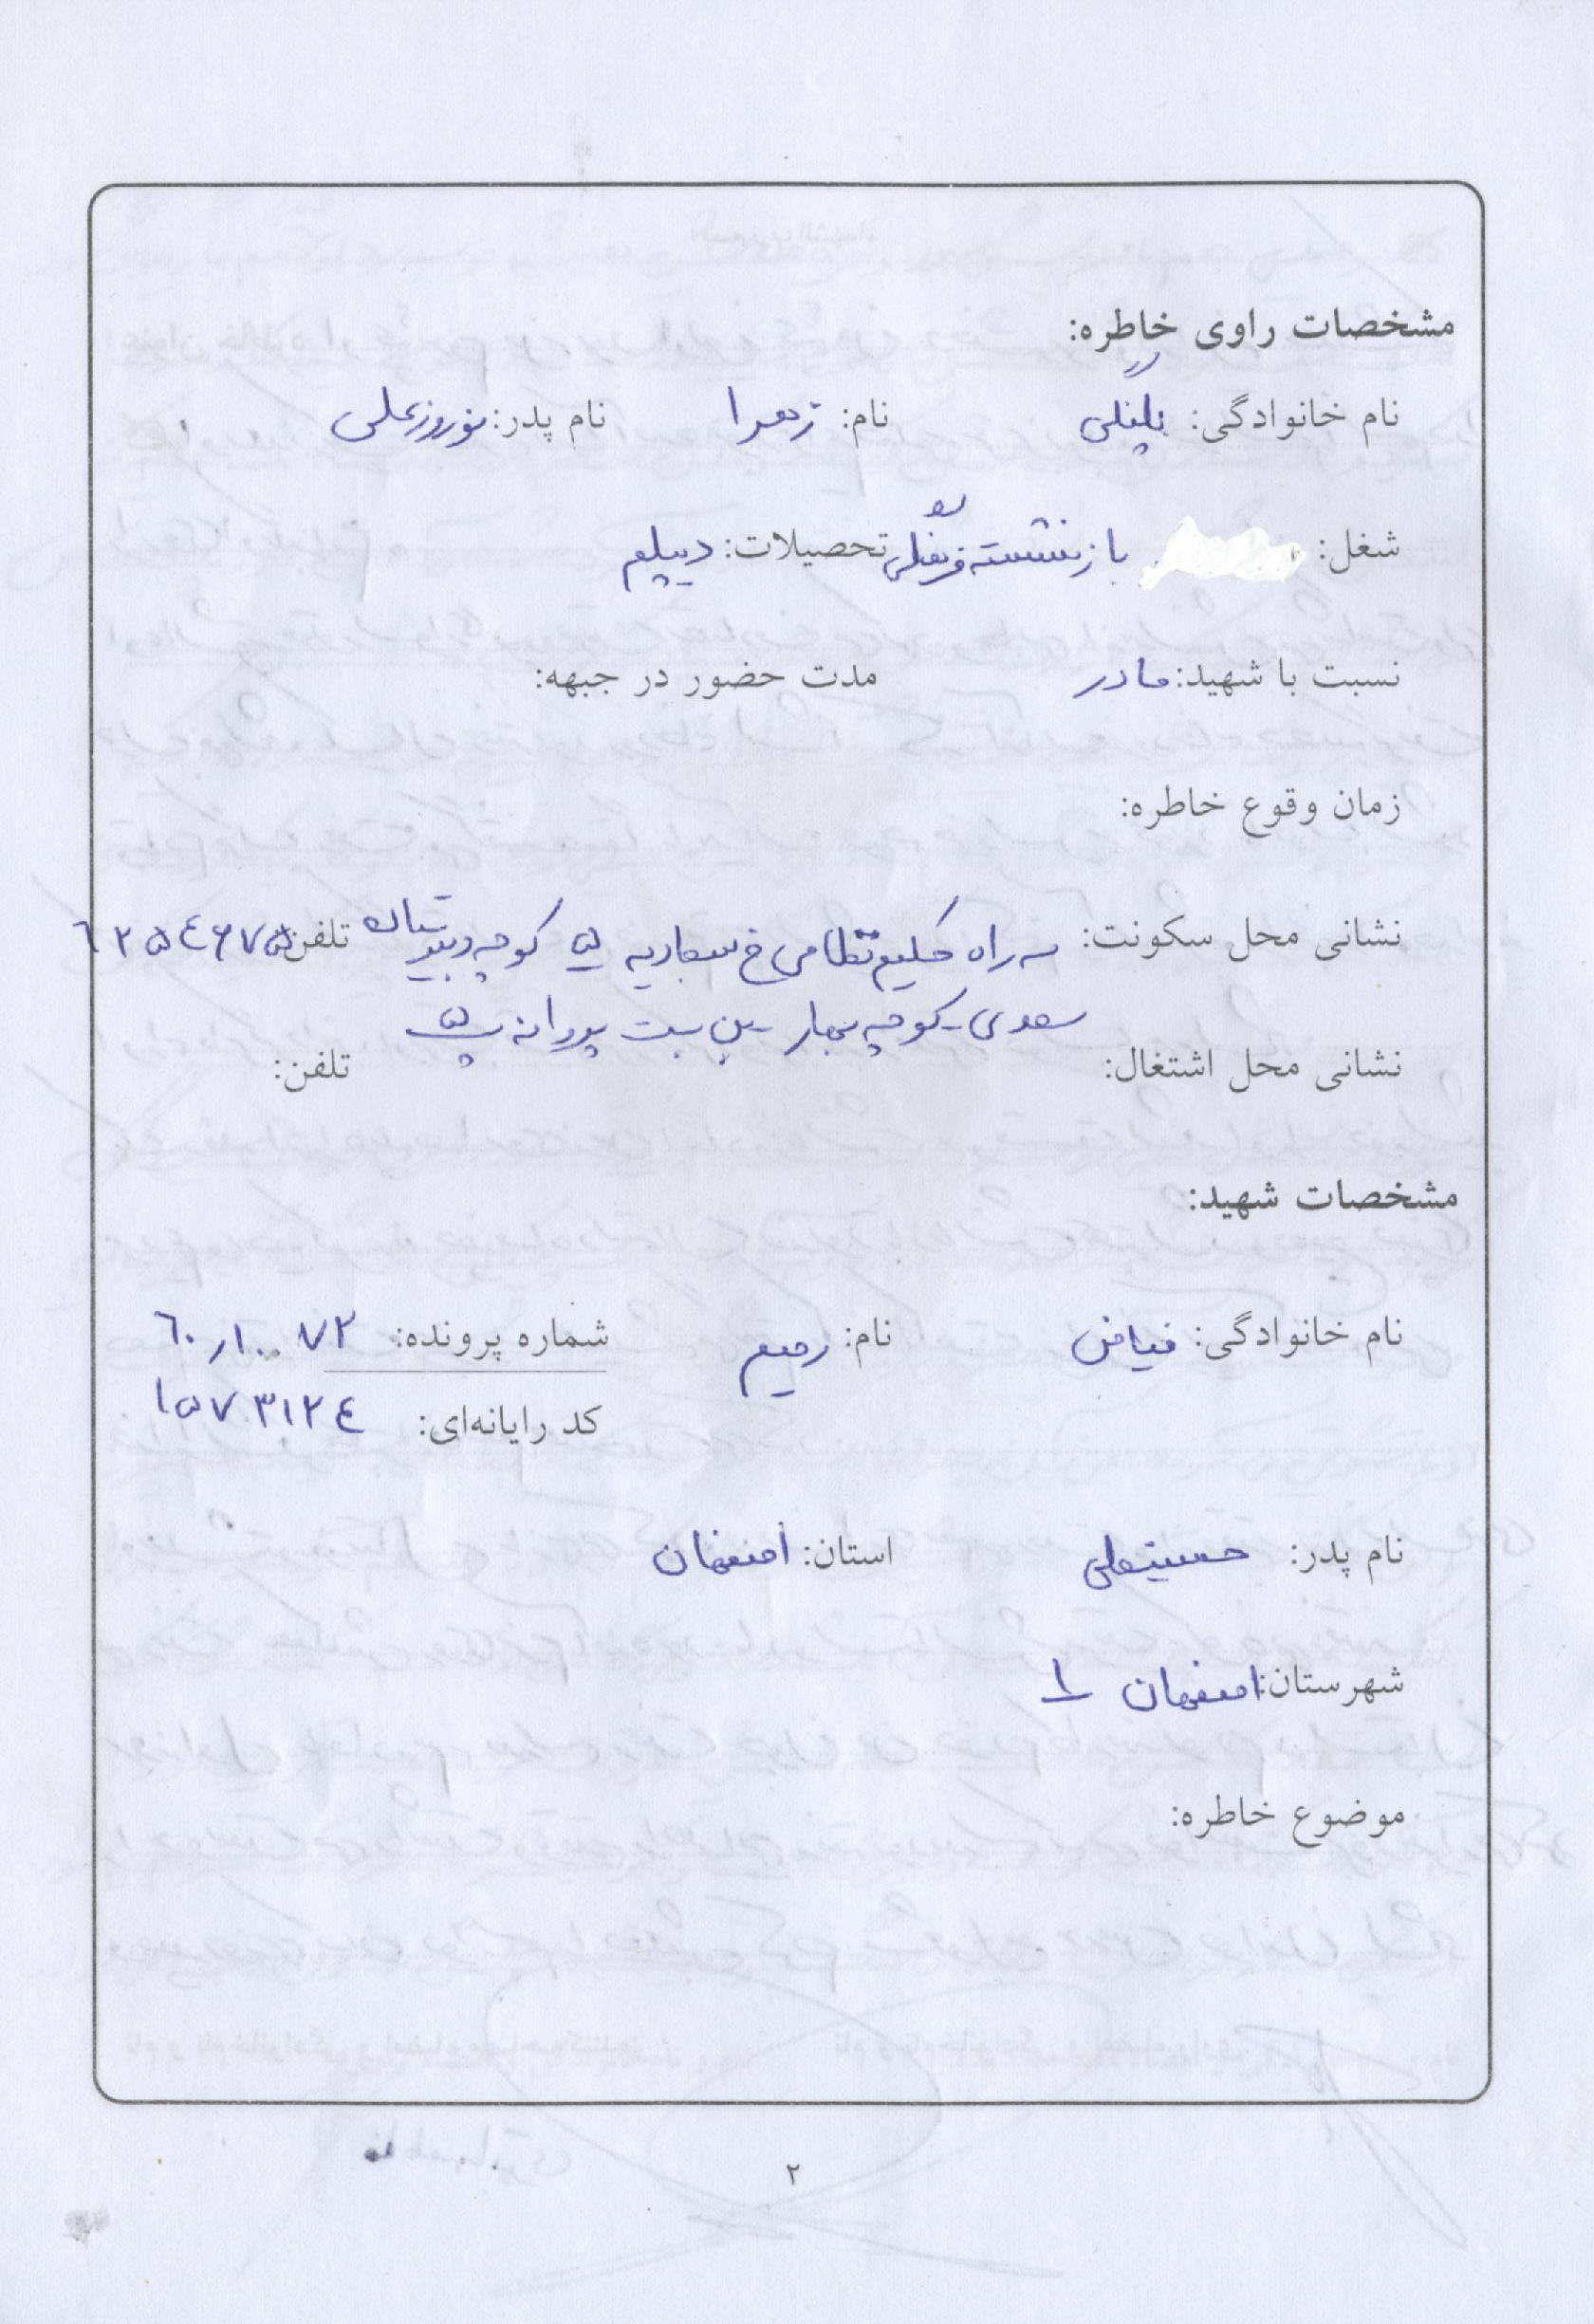 مشخصات راوی خاطره:
نام خانوادگی: پلنگی نام: زهرا نام پدر: نوروزعلی
شغل: بازنشسته فرهنگی تحصیلات: دیپلم
نسبت با شهید: مادر مدت حضور در جبهه:
زمان وقوع خاطره:
نشانی محل سکونت: سه راه حکیم نظامی خ سجادیه کوچه دبیرستان تلفن: ٦٢٥٤٦٧٥
سعدی - کوچه بهار - بن بست پروانه پ ۵
نشانی محل اشتغال: تلفن:
مشخصات شهید:
نام خانوادگی: فیاض نام: رحیم شماره پرونده: ٦٠ر١٠٠٧٢
کد رایانه‌ای: ١٥٧٣١٢٤
نام پدر: حسینعلی استان: اصفهان
شهرستان: اصفهان ١
موضوع خاطره:
٢